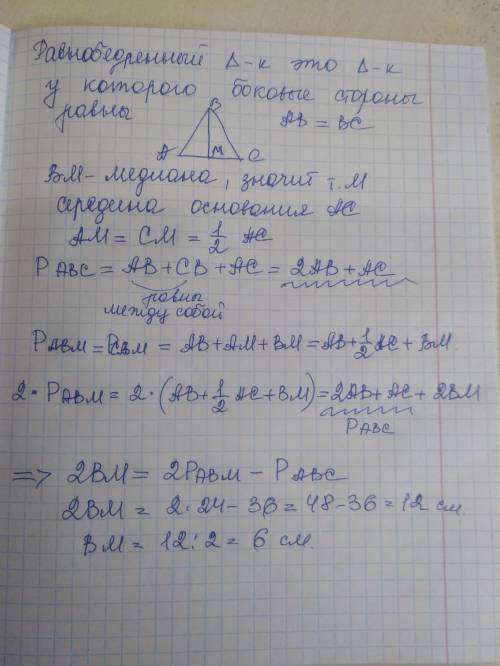 Равнобедренный Δ-к это Δ-к
у которого боковые стороны
равны AB = BC
B
A M C
BM - медиана, значит т. М
середина основания AC
AM = CM = 1/2 AC
P ABC = AB + CB + AC = 2AB + AC
равны
между собой
P ABM = P CBM = AB + AM + BM = AB + 1/2 AC + BM
2 · P ABM = 2 · (AB + 1/2 AC + BM) = 2AB + AC + 2BM
P ABC
=> 2BM = 2P ABM - P ABC
2BM = 2 · 24 - 36 = 48 - 36 = 12 см.
BM = 12 : 2 = 6 см.